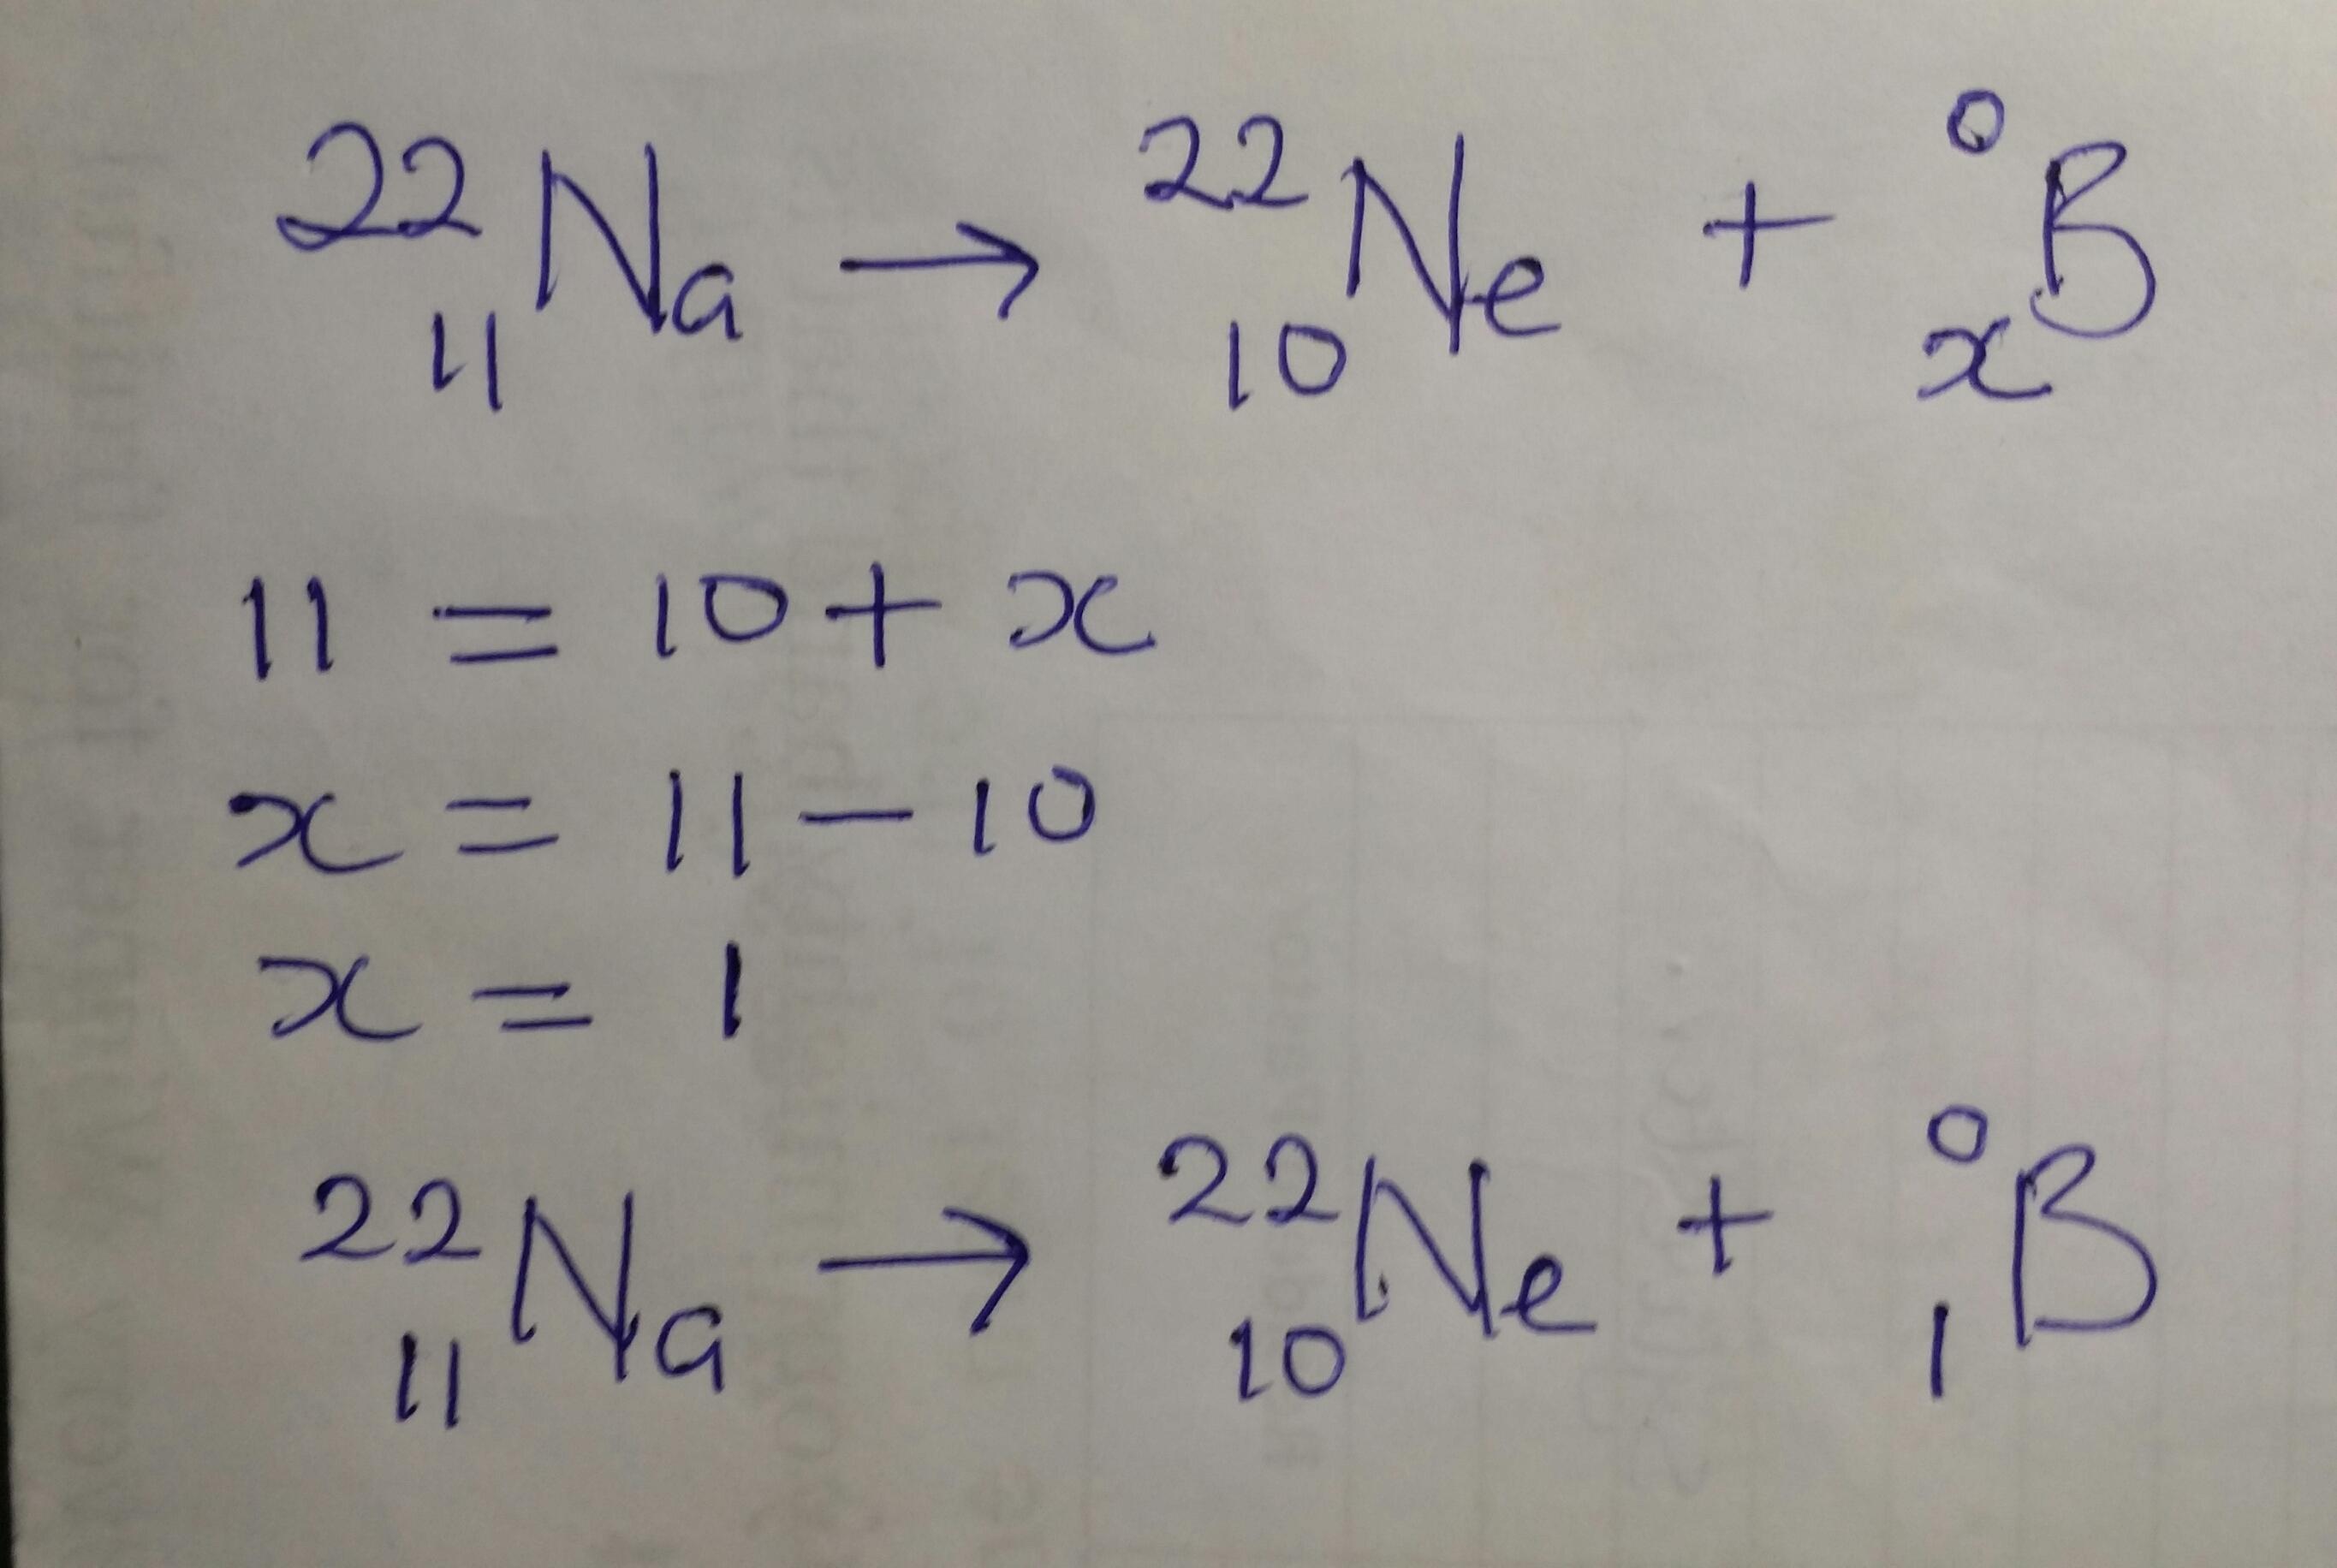 ²²₁₁Na → ²²₁₀Ne + ⁰ₓB
11 = 10 + x
x = 11 - 10
x = 1
²²₁₁Na → ²²₁₀Ne + ⁰₁B